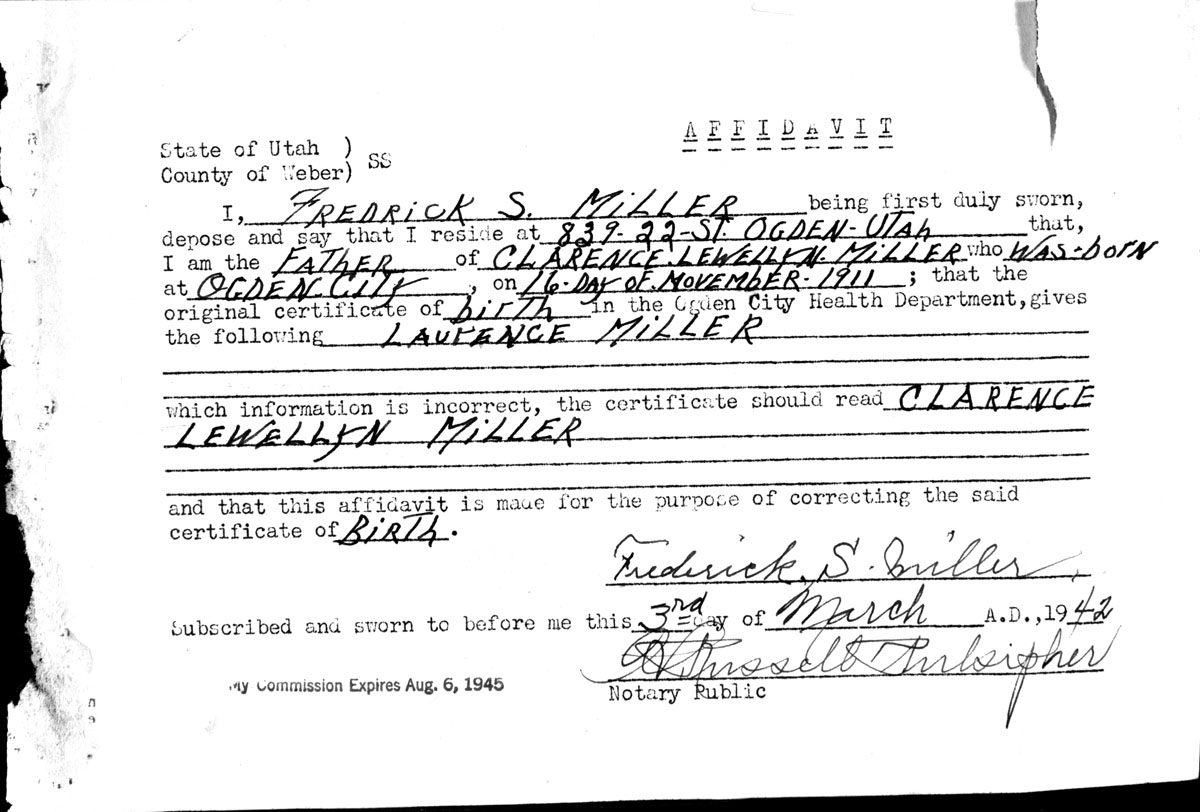 AFFIDAVIT
State of Utah )
County of Weber) SS
I, FREDRICK S. MILLER being first duly sworn,
depose and say that I reside at 839-22-ST. OGDEN-UTAH that,
I am the FATHER of CLARENCE LEWELLYN MILLER who WAS-BORN
at OGDEN CITY, on 16-DAY OF NOVEMBER-1911; that the
original certificate of birth in the Ogden City Health Department, gives
the following LAURENCE MILLER
which information is incorrect, the certificate should read CLARENCE
LEWELLYN MILLER
and that this affidavit is made for the purpose of correcting the said
certificate of BIRTH.
Frederick S. Miller
Subscribed and sworn to before me this 3rd day of March A.D., 1942
Russell Pulsipher
My Commission Expires Aug. 6, 1945
Notary Public